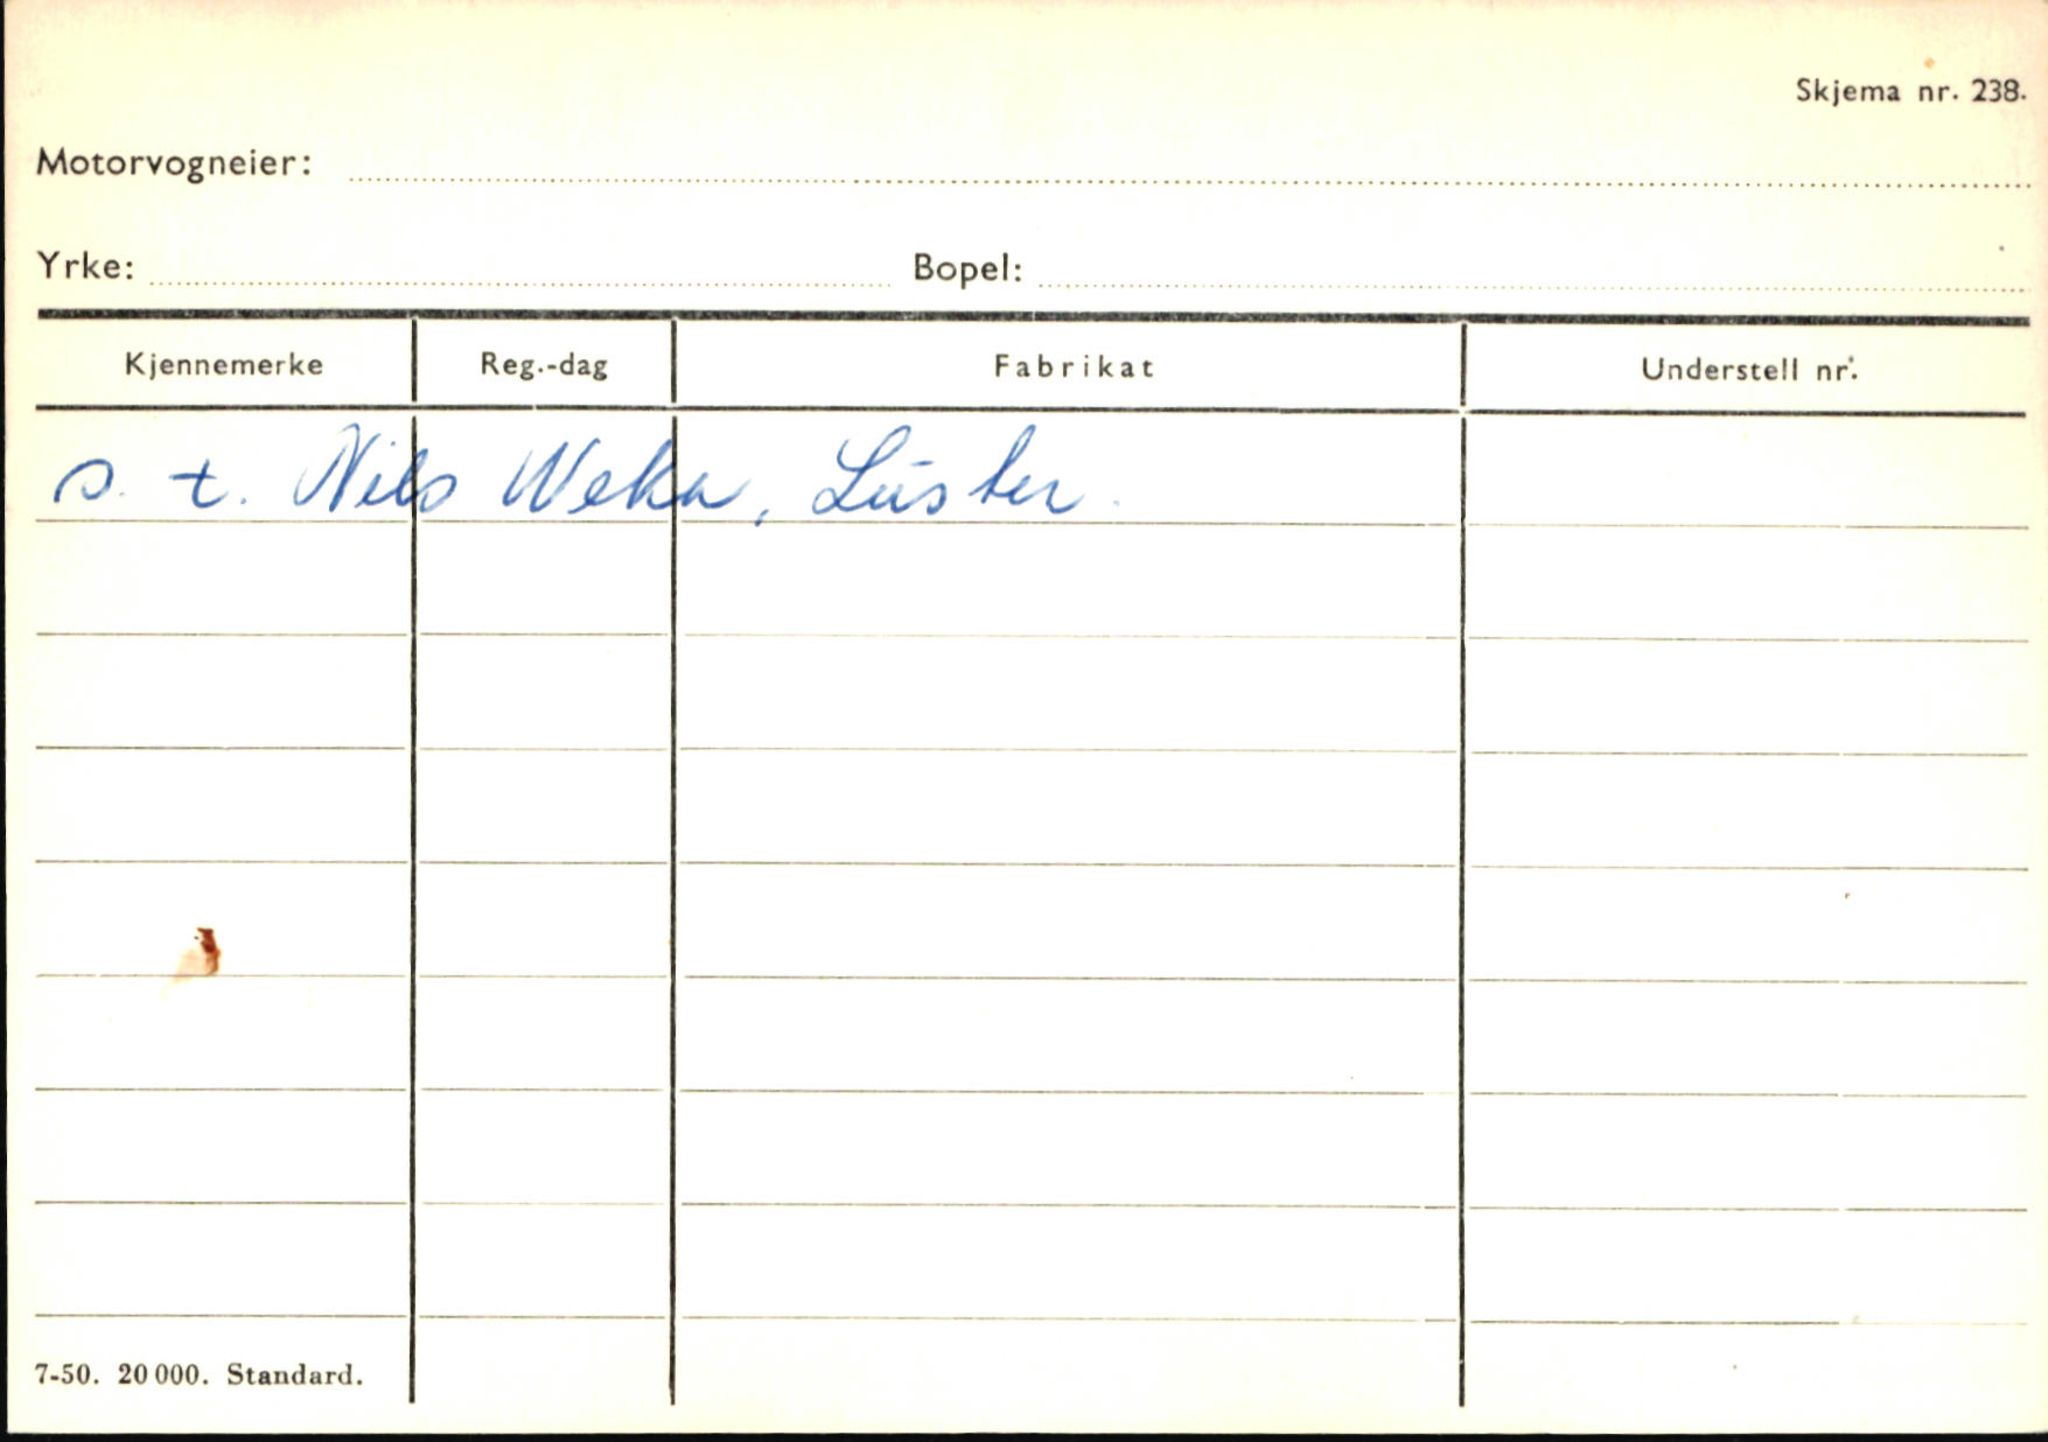 Skjema nr. 238.
Motorvogneier:
Yrke: Bopel:
Kjennemerke Reg.-dag Fabrikat Understell nr.
s. t. Nils Weka, Luster.
7-50. 20 000. Standard.